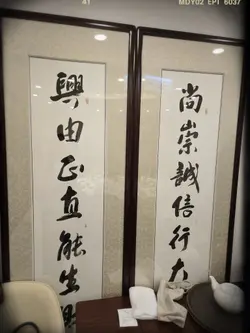 41 MOY02 EPT 6037
尚崇誠信行大
興由正直能生